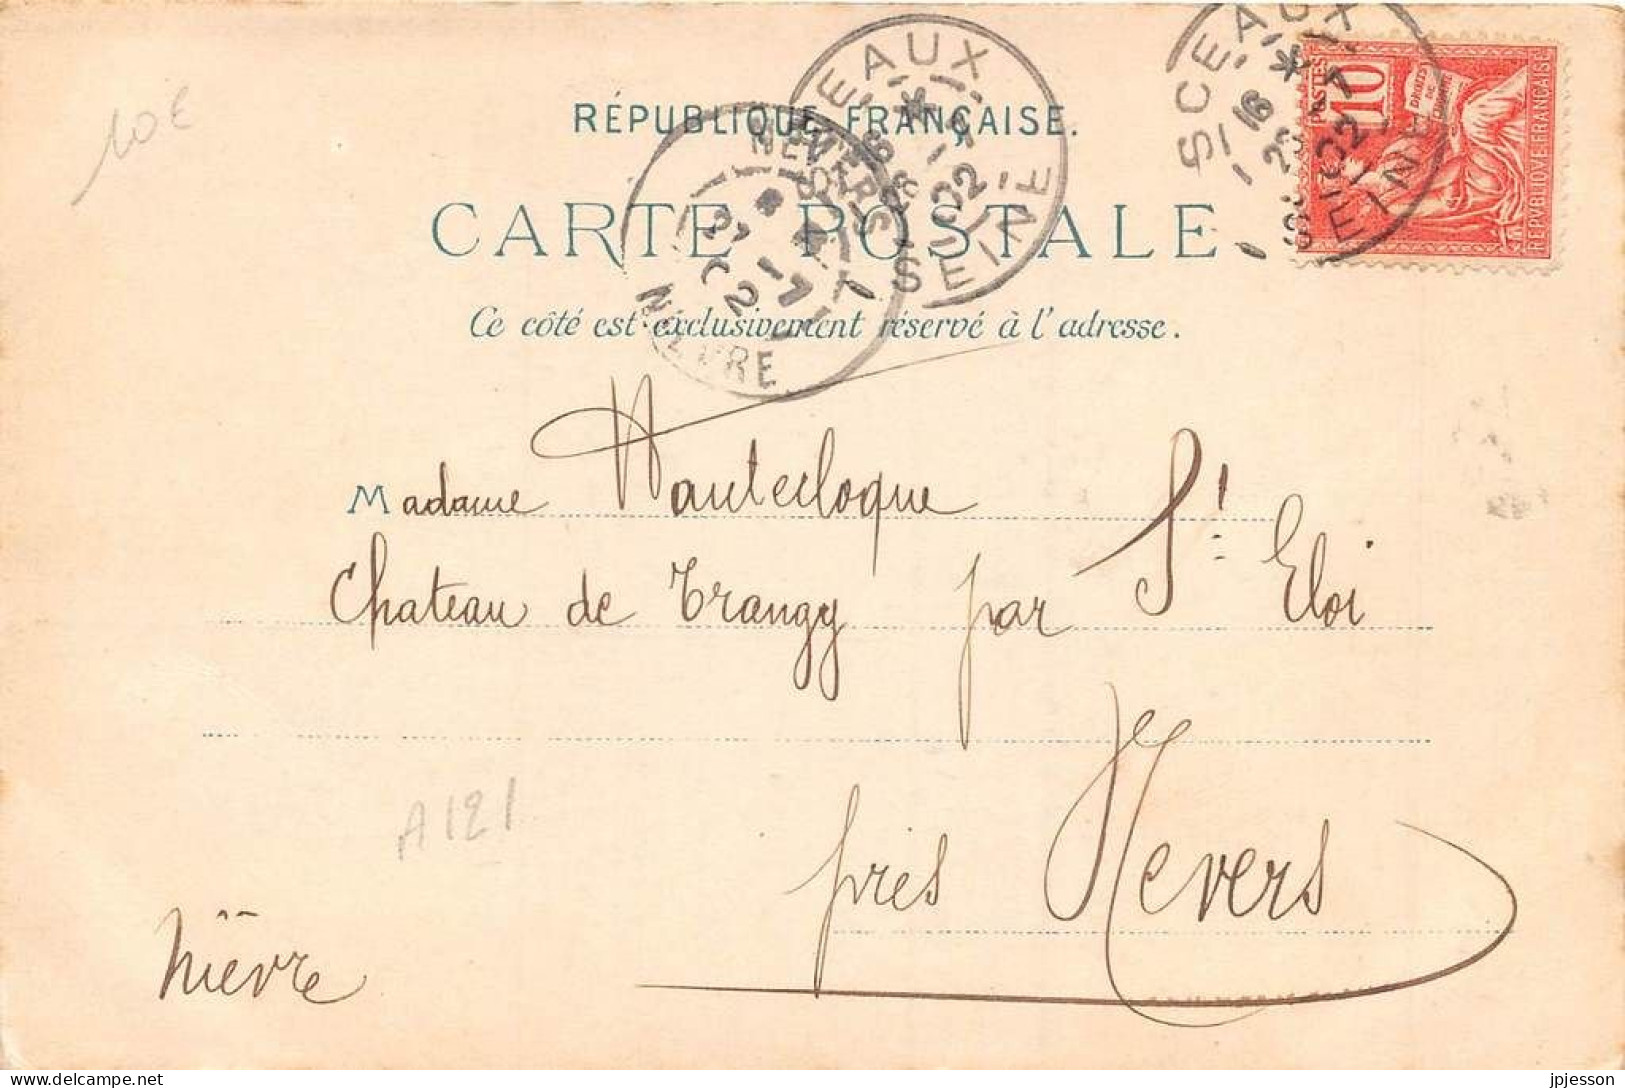 10€
RÉPUBLIQUE FRANÇAISE.
CARTE POSTALE
Ce côté est exclusivement réservé à l'adresse.
SCEAUX
SEINE
SCEAUX
SEINE
NEVERS
NIEVRE
POSTES
10
DROITS DE L'HOMME
REPVBLIQVE FRANÇAISE
Madame Hautecloque
Chateau de Trangy par St Eloi
près Nevers
Nièvre
A121
delcampe.net
jpjesson